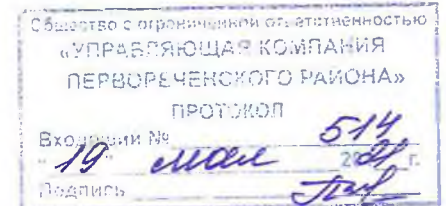 Общество с ограниченной ответственностью
«УПРАВЛЯЮЩАЯ КОМПАНИЯ
ПЕРВОРЕЧЕНСКОГО РАЙОНА»
ПРОТОКОЛ
Входящий № 514
"19" мая 2021 г.
Подпись